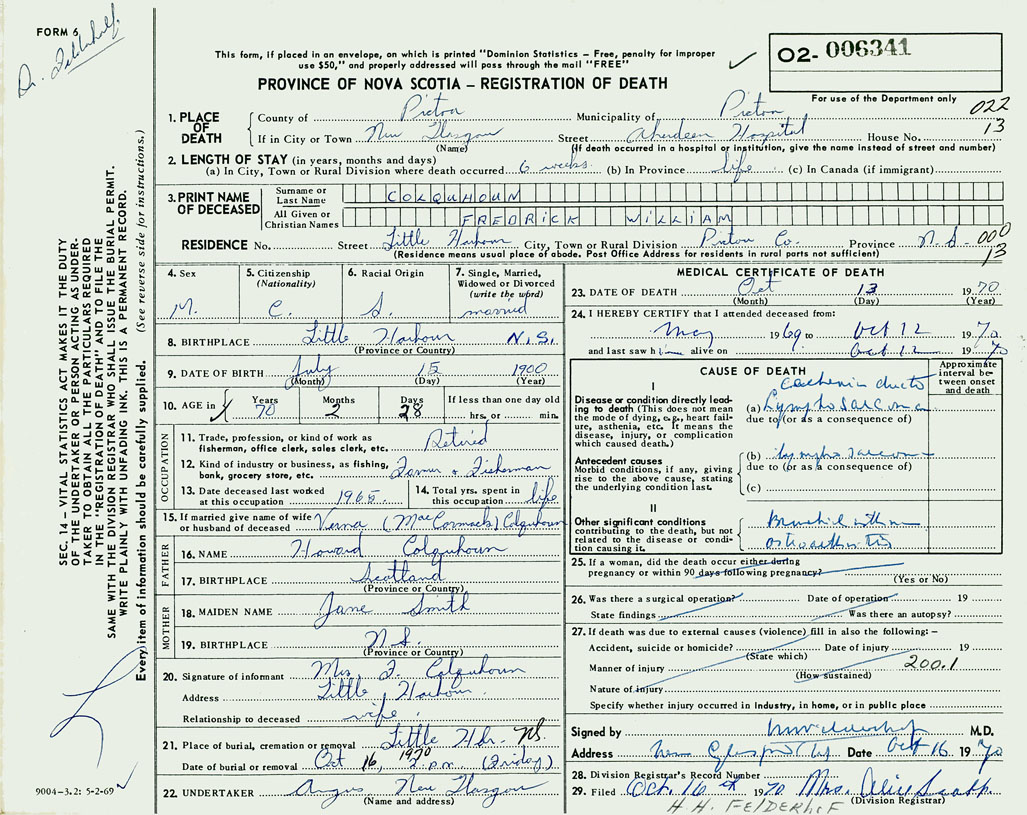 FORM 6
Dr. Felderhof
This form, if placed in an envelope, on which is printed "Dominion Statistics – Free, penalty for improper
use $50," and properly addressed will pass through the mail "FREE"
PROVINCE OF NOVA SCOTIA – REGISTRATION OF DEATH
02- 006341
For use of the Department only
022
13
1. PLACE OF DEATH
County of Pictou Municipality of Pictou
If in City or Town New Glasgow Street Aberdeen Hospital House No.
(Name) (If death occurred in a hospital or institution, give the name instead of street and number)
2. LENGTH OF STAY (in years, months and days)
(a) In City, Town or Rural Division where death occurred 6 weeks (b) In Province life (c) In Canada (if immigrant)
3. PRINT NAME OF DECEASED
Surname or Last Name COLQUHOUN
All Given or Christian Names FREDRICK WILLIAM
RESIDENCE No. Street Little Harbour City, Town or Rural Division Pictou Co. Province N.S. 000
13
(Residence means usual place of abode. Post Office Address for residents in rural parts not sufficient)
4. Sex M.
5. Citizenship (Nationality) C.
6. Racial Origin S.
7. Single, Married, Widowed or Divorced (write the word) married
8. BIRTHPLACE Little Harbour N.S.
(Province or Country)
9. DATE OF BIRTH July 15 1900
(Month) (Day) (Year)
10. AGE in Years 70 Months 2 Days 28 If less than one day old hrs. or min.
OCCUPATION
11. Trade, profession, or kind of work as fisherman, office clerk, sales clerk, etc. Retired
12. Kind of industry or business, as fishing, bank, grocery store, etc. Farmer & Fisherman
13. Date deceased last worked at this occupation 1965
14. Total yrs. spent in this occupation life
15. If married give name of wife or husband of deceased Verna (MacCormack) Colquhoun
FATHER
16. NAME Howard Colquhoun
17. BIRTHPLACE Scotland
(Province or Country)
MOTHER
18. MAIDEN NAME Jane Smith
19. BIRTHPLACE N.S.
(Province or Country)
20. Signature of informant Mrs F. Colquhoun
Address Little Harbour
Relationship to deceased wife
21. Place of burial, cremation or removal Little Hbr. NS.
Date of burial or removal Oct 16, 1970 2 p.m. (Friday)
22. UNDERTAKER Angus New Glasgow
(Name and address)
MEDICAL CERTIFICATE OF DEATH
23. DATE OF DEATH Oct 13 1970
(Month) (Day) (Year)
24. I HEREBY CERTIFY that I attended deceased from:
May 1969 to Oct 12 1970
and last saw him alive on Oct 12 1970
CAUSE OF DEATH
Approximate interval between onset and death
I
Disease or condition directly leading to death (This does not mean the mode of dying, e.g., heart failure, asthenia, etc. It means the disease, injury, or complication which caused death.)
cachexia due to
(a) Lymphosarcoma
due to (or as a consequence of)
Antecedent causes
Morbid conditions, if any, giving rise to the above cause, stating the underlying condition last.
(b) lymphosarcoma
due to (or as a consequence of)
(c)
II
Other significant conditions contributing to the death, but not related to the disease or condition causing it.
Bronchial asthma
Osteoarthritis
25. If a woman, did the death occur either during
pregnancy or within 90 days following pregnancy?
(Yes or No)
26. Was there a surgical operation? Date of operation 19
State findings Was there an autopsy?
27. If death was due to external causes (violence) fill in also the following: –
Accident, suicide or homicide? Date of injury 19
(State which)
Manner of injury 200.1
(How sustained)
Nature of injury
Specify whether injury occurred in industry, in home, or in public place
Signed by M.D.
Address New Glasgow Date Oct 16 1970
28. Division Registrar's Record Number
29. Filed Oct. 16th 1970 Mrs. Alice
(Division Registrar)
H.H. FELDERHOF
SEC. 14 – VITAL STATISTICS ACT MAKES IT THE DUTY
OF THE UNDERTAKER OR PERSON ACTING AS UNDER-
TAKER TO OBTAIN ALL THE PARTICULARS REQUIRED
IN THE "REGISTRATION OF DEATH" AND TO FILE THE
SAME WITH THE DIVISION REGISTRAR WHO SHALL ISSUE THE BURIAL PERMIT.
WRITE PLAINLY WITH UNFADING INK. THIS IS A PERMANENT RECORD.
Every item of information should be carefully supplied. (See reverse side for instructions.)
9004-3.2: 5-2-69